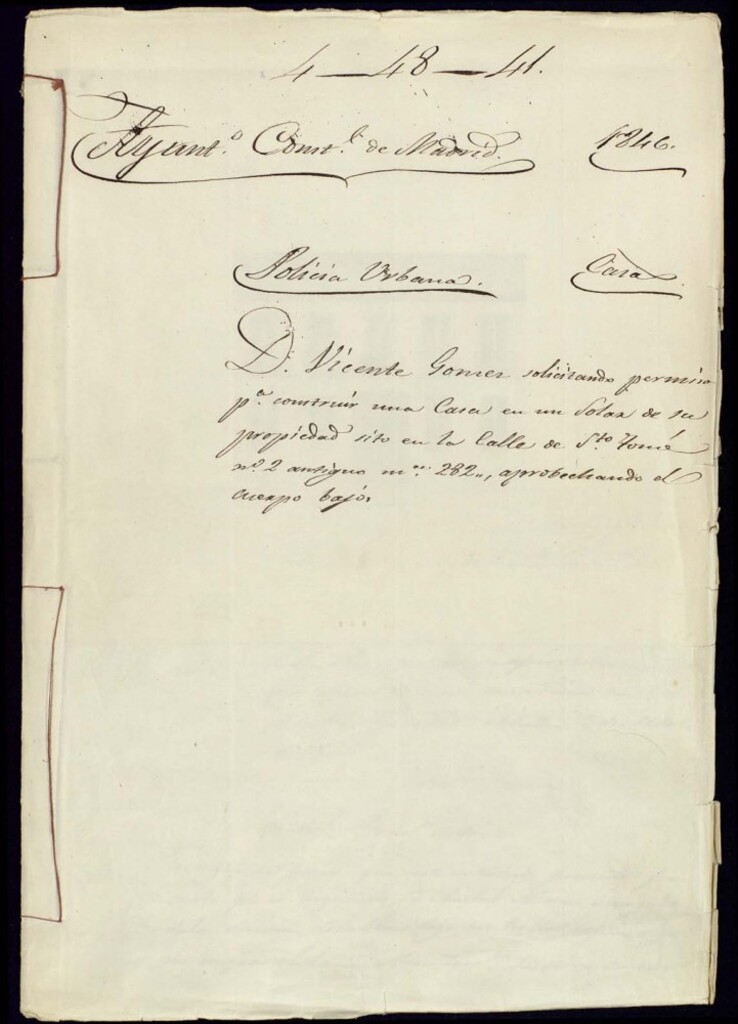 4-48-41.
Ayunt.o Const.l de Madrid. 1846.
Policia Urbana. Casa
D. Vicente Gomez solicitando permiso
p.a construir una Casa en un Solar de su
propiedad sito en la Calle de S.to Tomé
n.o 2 antiguo m.na 282,, aprobechando el
cuerpo bajo.